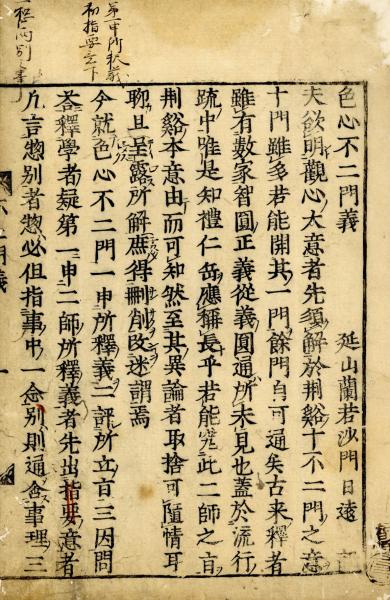 色心不二門義
延山蘭若沙門日遠
夫欲明觀心大意者先須解於荆谿十不二門之意
十門雖多若能開其一門餘門自可通矣古来釋者
雖有數家智圓正義從義圓通所未見也蓋於流行
疏中唯是知禮仁岳應稱長乎若能究此二師之旨
荆谿本意由而可知然至其異論者取捨可隨情耳
聊且呈露所解庶得刪削改迷謂焉
今就色心不二門一申所釋義二評所立旨三因問
荅釋學者疑第一申二師所釋義者先出指要意者
凡言惣別者惣必但指事中一念別則通含事理三
第一申所釋義
初指要之下
不二門義
一